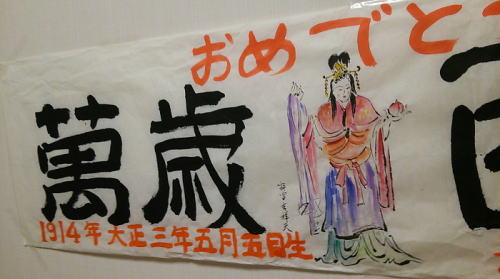 おめでと
萬歳
吉祥天
1914年 大正三年五月五日生